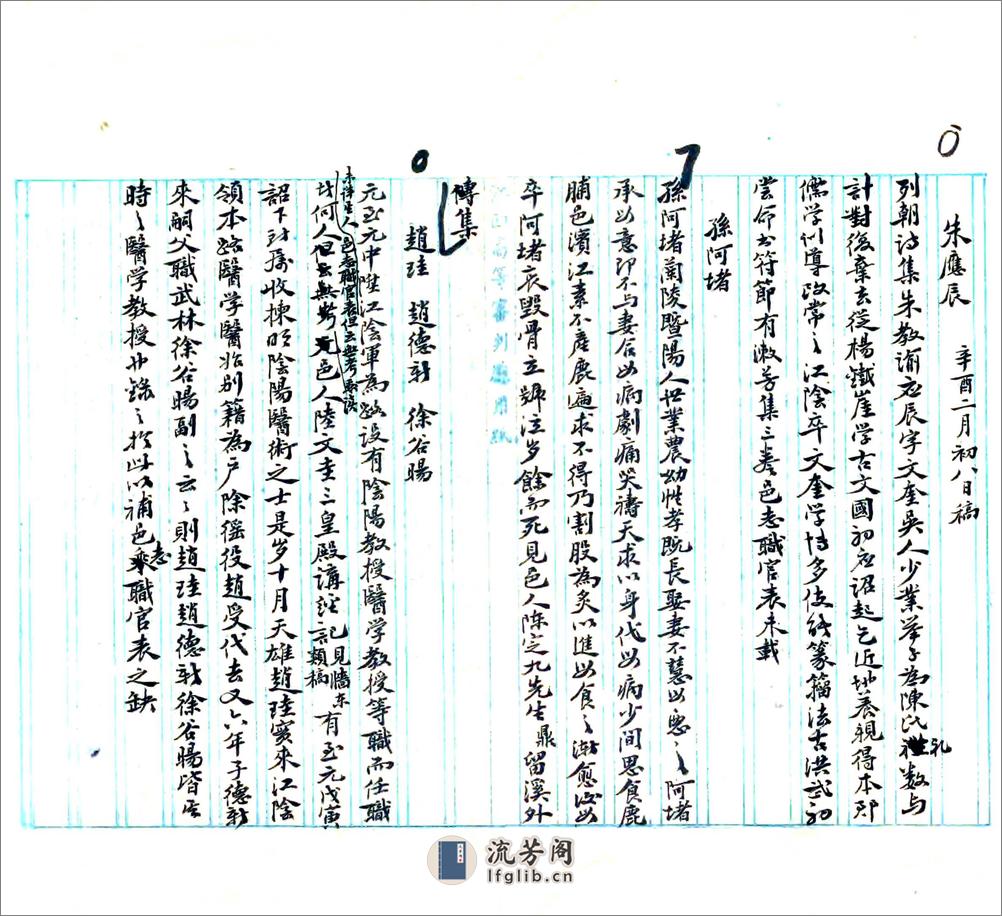 朱應辰 辛酉二月初八日稿
列朝詩集朱教諭應辰字文奎吳人少業舉子為陳氏禮數与
計對後棄去從楊鐵崖学古文國初应詔起乞近地养親得本郡
儒学训導改常之江陰卒文奎学博多伎能篆籀法古洪武初
嘗命书符節有漱芳集三卷邑志職官表未載
孫阿堵
孫阿堵蘭陵暨陽人世業農幼性孝既長娶妻不慧母惡之阿堵
承母意卽不与妻合母病劇痛哭禱天求以身代母病少間思食鹿
脯邑濱江素不產鹿遍求不得乃割股為炙以進母食之漸愈後母
卒阿堵哀毀骨立號泣岁餘而死見邑人陈定九先生鼎留溪外
傳集
趙珪 趙德新 徐谷暘
元至元中陞江陰軍為路設有陰陽教授醫学教授等職而任職
者何人邑志職官表但云無考邑人陸文圭三皇殿講經記已見墻东類稿有至元戊寅
詔下郡属收揀明陰陽醫術之士是岁十月天雄趙珪实來江陰
領本路醫学醫始别籍為户除徭役趙受代去又六年子德新
來嗣父職武林徐谷暘副之云云則趙珪趙德新徐谷暘皆其
時之醫学教授也錄之於此以補邑志職官表之缺
流芳阁
lfglib.cn